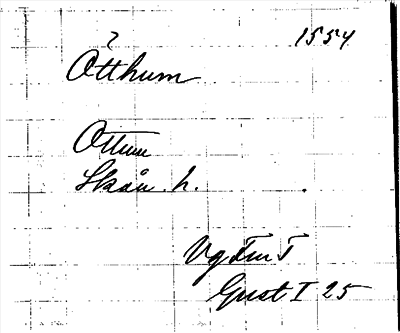 1554
Ótthum
Ottum
Skån. h.
Vg
Gust I 25